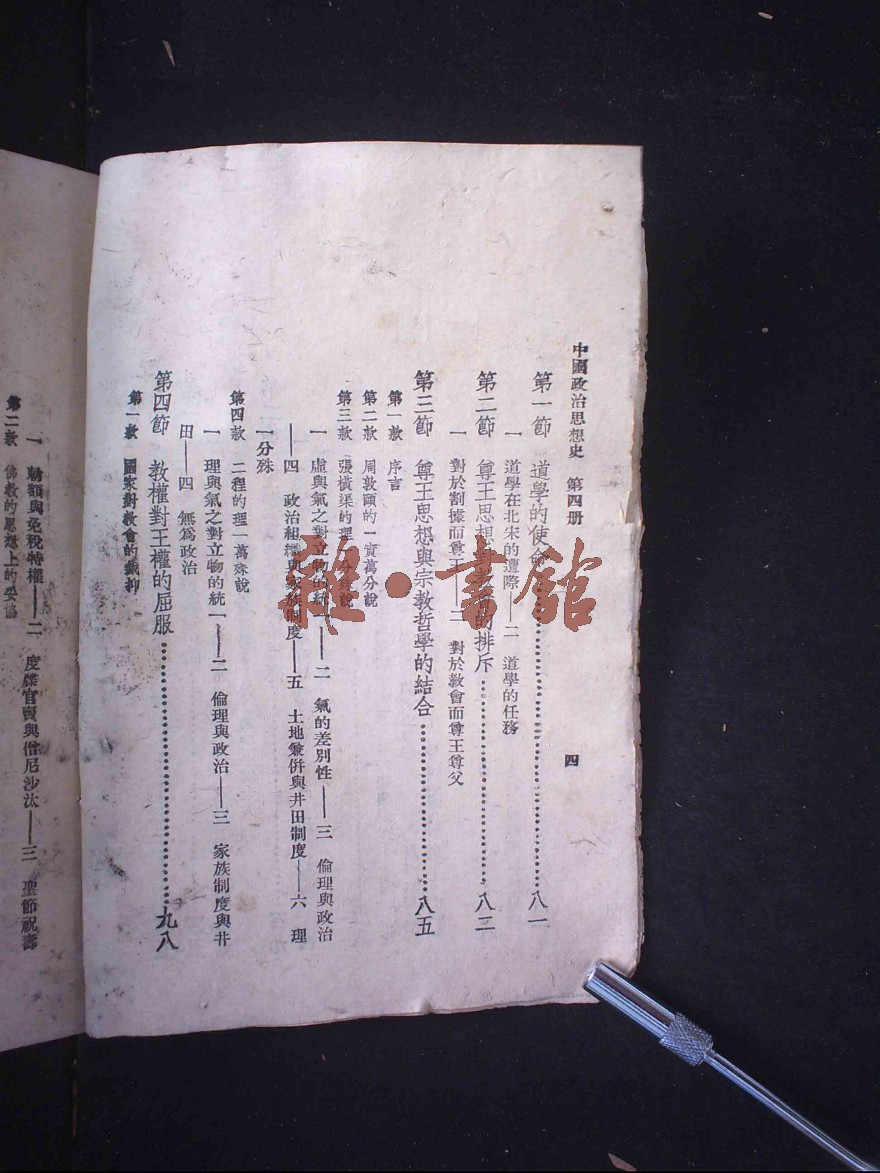 中國政治思想史 第四册
四
第一節 道學的使命……八一
一 道學在北宋的遭際——二 道學的任務
第二節 尊王思想對老佛的排斥……八二
一 對於割據而尊王——二 對於教會而尊王尊父
第三節 尊王思想與宗教哲學的結合……八五
第一款 序言
第二款 周敦頤的一實萬分說
第三款 張橫渠的理一分殊說
一 虛與氣之對立物的統一——二 氣的差別性——三 倫理與政治
——四 政治組織與家族制度——五 土地兼併與井田制度——六 理
一分殊
第四款 二程的理一萬殊說
一 理與氣之對立物的統一——二 倫理與政治——三 家族制度與井
田——四 無爲政治
第四節 教權對王權的屈服……九八
第一款 國家對教會的裁抑
一 勅額與免稅特權——二 度牒官賣與僧尼沙汰——三 聖節祝壽
第二款 佛教的思想上的妥協
雅·書館